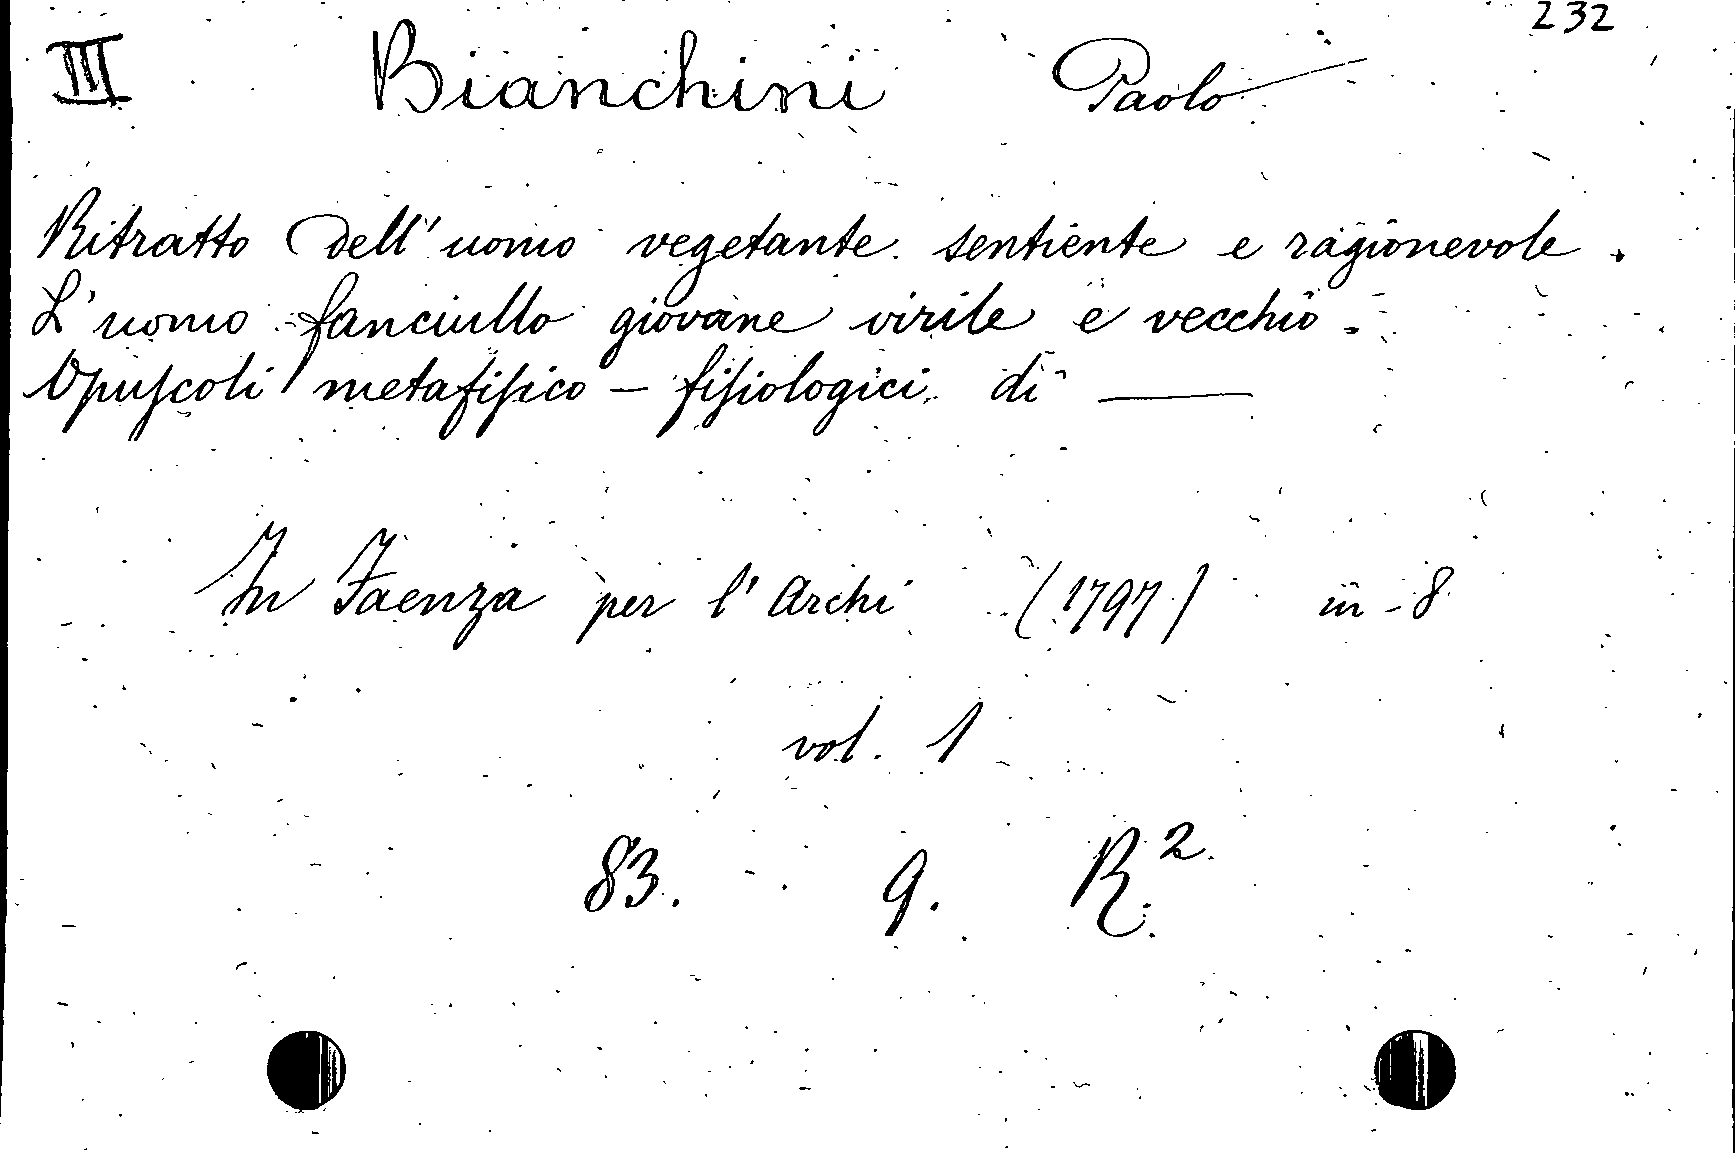 232
III Bianchini Paolo
Ritratto dell'uomo vegetante sentiente e ragionevole.
L'uomo fanciullo giovane virile e vecchio.
Opuſcoli metafiſico - fiſiologici di ———
In Faenza per l'Archi (1797) in-8
vol. 1
83. 9. R.2